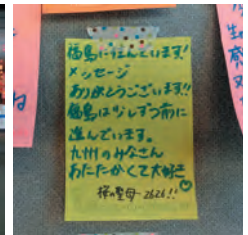 福島に住んでいます!
メッセージ
ありがとうございます!!
福島は少しずつ前に
進んでいます。
九州のみなさん
あたたかくて大好き♡
桜の聖母-2626!!
ね
生の